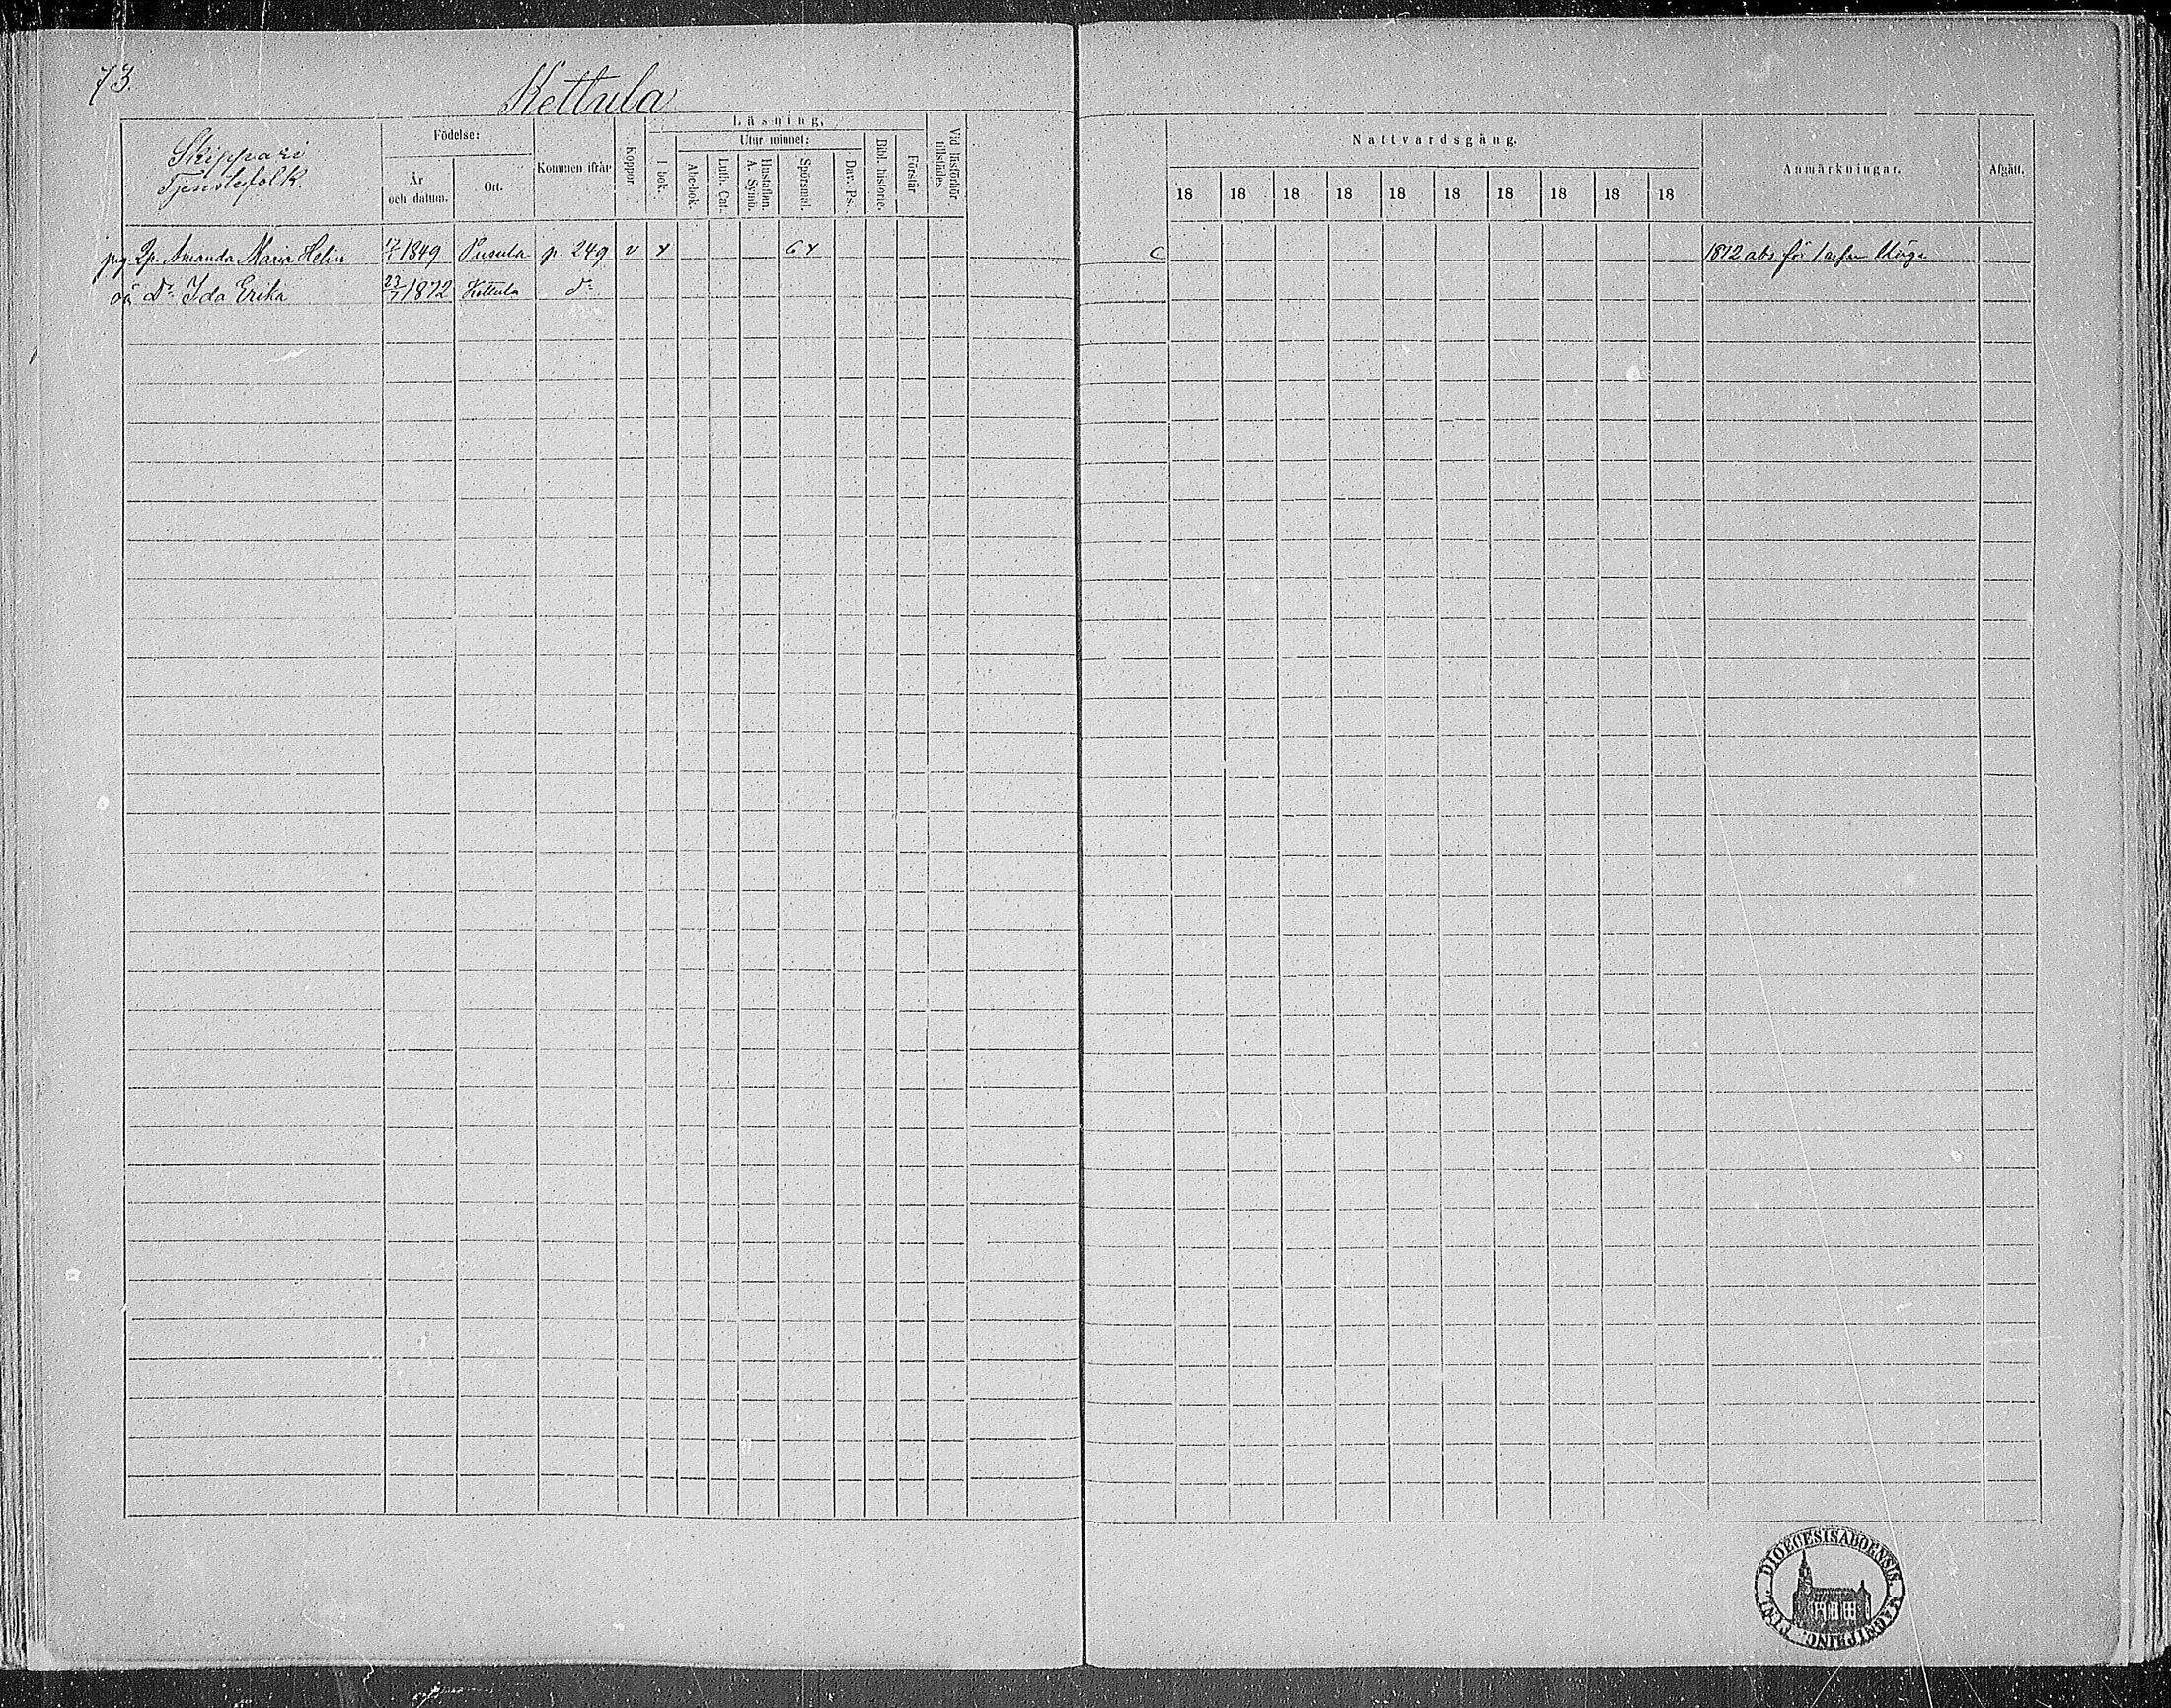 73.
Kettula
Skippari
Tjenstefolk.
Födelse:
År
och datum.
Ort.
Kommen ifrån
Koppor.
Läsning.
I bok.
Utur minnet:
Abc-bok.
Luth. Cat.
Hustaflan.
A. Symb.
Spörsmal.
Dav. Ps.
Bibl. historie.
Förstår
Vid läsförhör
tillstädes
Nattvardsgång.
18 18 18 18 18 18 18 18 18 18
Anmärkningar.
Afgått.
pig. Qp. Amanda Maria Helin 17/7 1849 Pusula p. 249 v x 6 x C 1872 abs. för
oä Dr. Ida Erika 23/7 1872 Kettula do
DIOECESIS ABOENSIS. MAGNI PRINC. FINL.